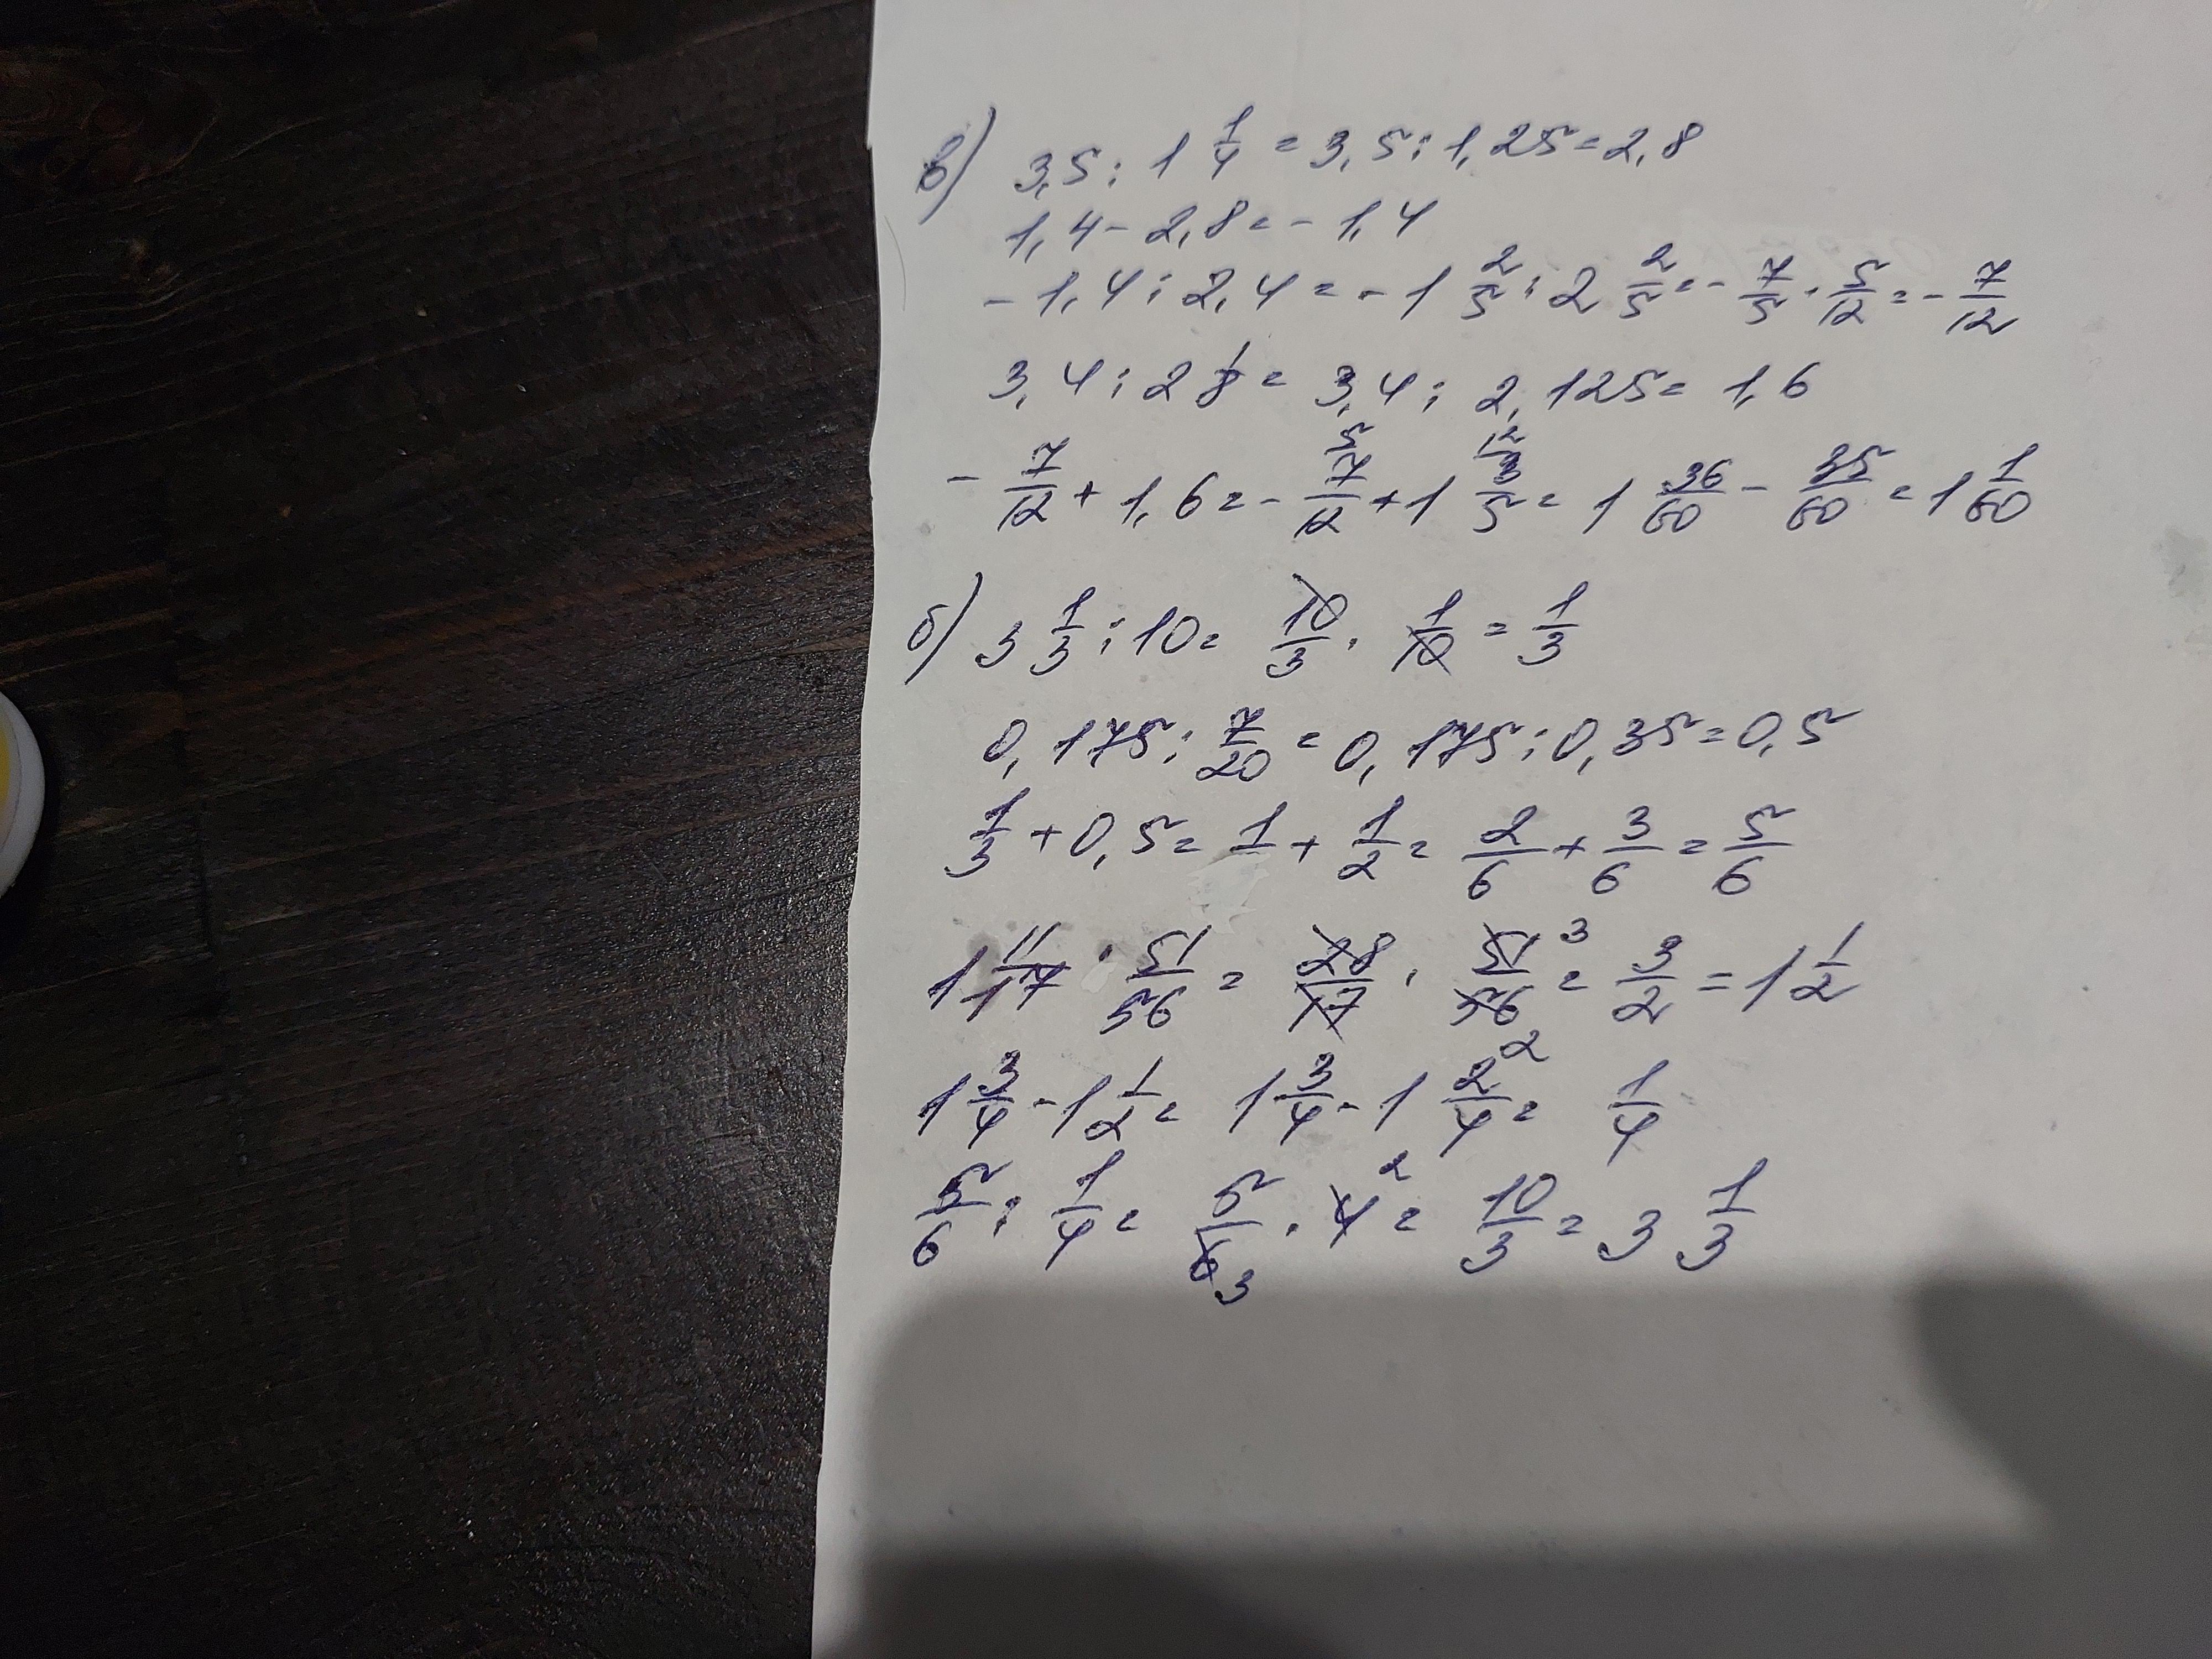 в) 3,5 : 1 1/4 = 3,5 : 1,25 = 2,8
1,4 - 2,8 = - 1,4
- 1,4 : 2,4 = - 1 2/5 : 2 2/5 = - 7/5 · 5/12 = - 7/12
3,4 : 2 1/8 = 3,4 : 2,125 = 1,6
- 7/12 + 1,6 = - 7/12 ⁵ + 1 3/5 ¹² = 1 36/60 - 35/60 = 1 1/60
б) 3 1/3 : 10 = 10/3 · 1/10 = 1/3
0,175 : 7/20 = 0,175 : 0,35 = 0,5
1/3 + 0,5 = 1/ + 1/2 = 2/6 + 3/6 = 5/6
1 11/17 · 51/56 = 28/17 · 51/56 ³ ₂ = 3/2 = 1 1/2
1 3/4 - 1 1/2 = 1 3/4 - 1 2/4 = 1/4
5/6 : 1/4 = 5/6 ₃ · 4 ² = 10/3 = 3 1/3